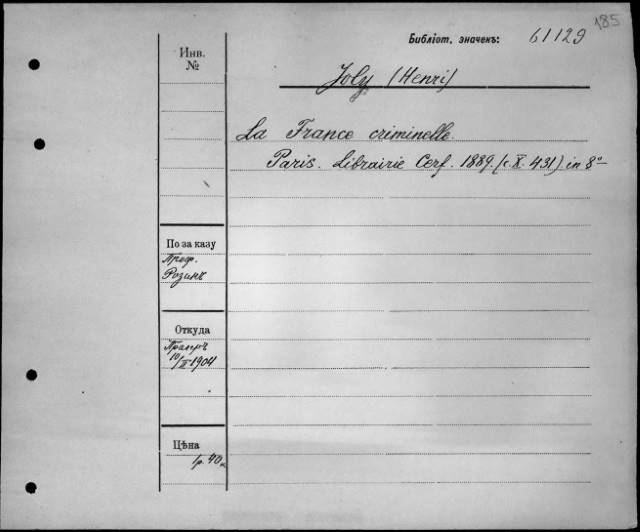 185
Библіот. значекъ: 61129
Инв.
№
Joly (Henri)
La France criminelle.
Paris. Librairie Cerf. 1889. (c. X. 431) in 8°
По заказу
Проф.
Розинъ
Откуда
Прагеръ
10/II 1904
Цѣна
1р. 40к.